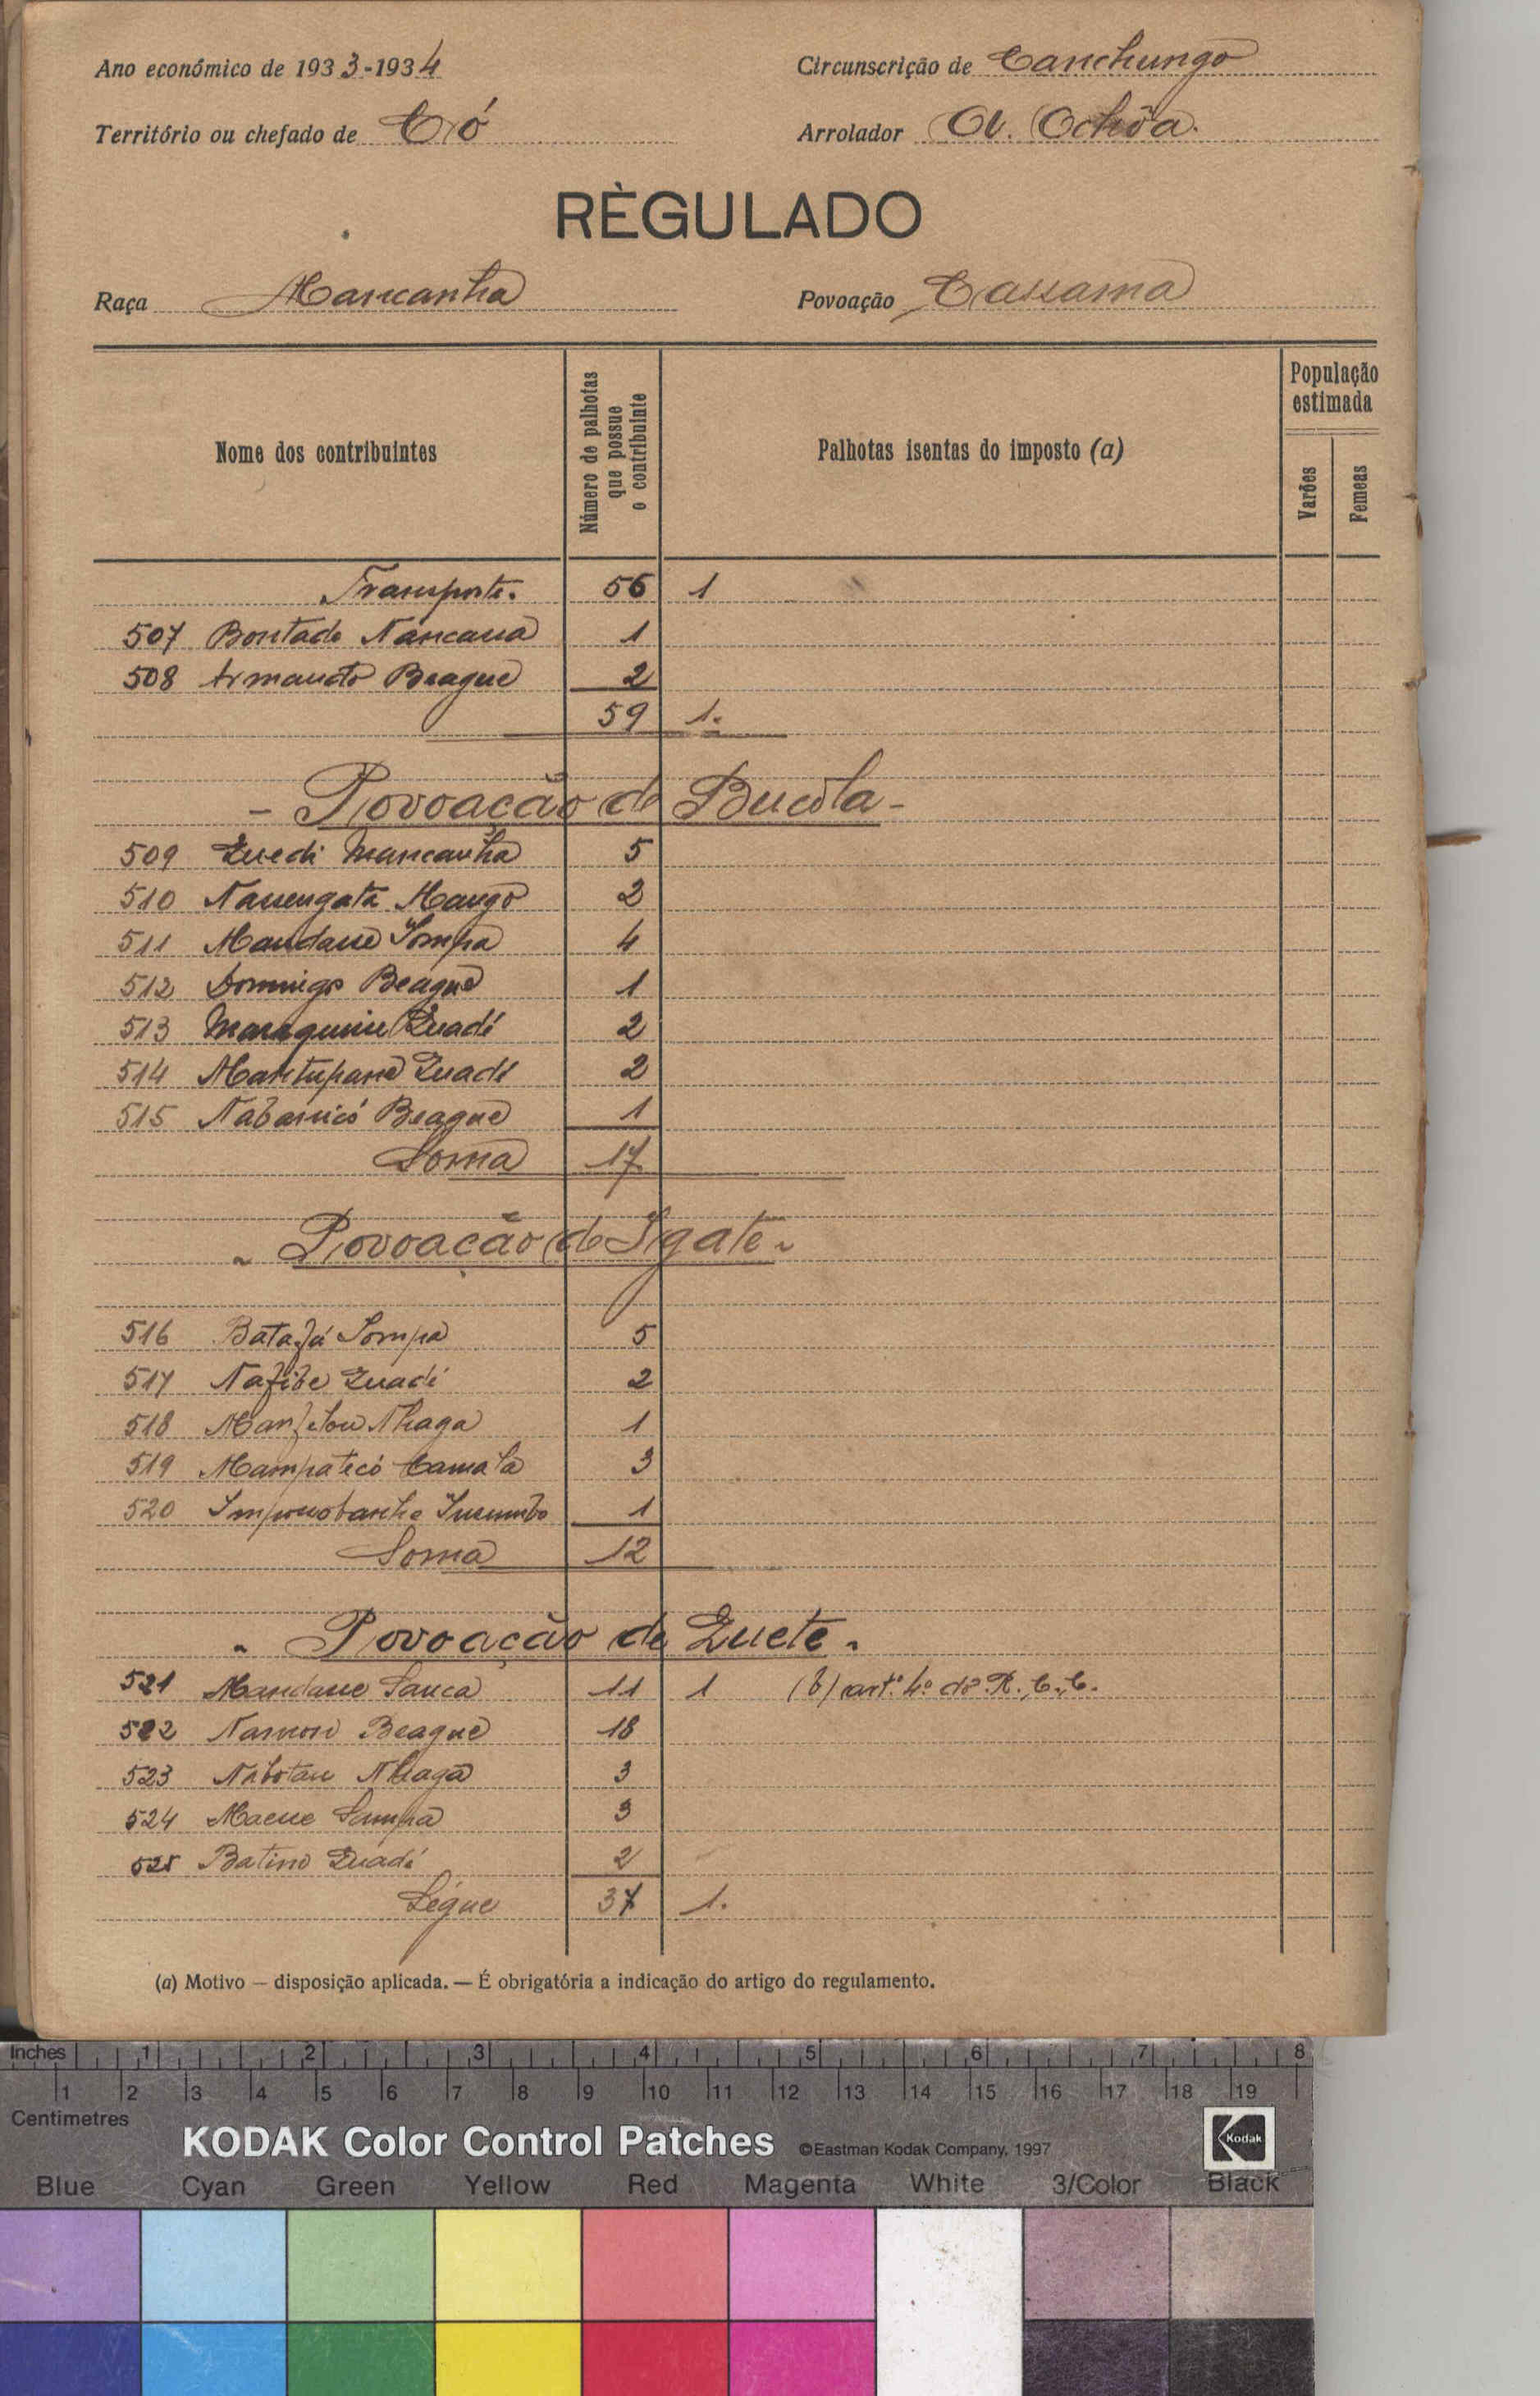 Ano económico de 1933-1934
Circunscrição de Canchungo
Território ou chefado de Có
Arrolador A. Ochôa.
RÈGULADO
Raça Mancanha
Povoação Cassama
Nome dos contribuintes
Número de palhotas que possue o contribuinte
Palhotas isentas do imposto (a)
População estimada
Varões
Femeas
Transporte. 56 1
507 Bontade 1
508 Armando Beague 2
59 1.
- Povoação de Bucola -
509 Quedi Mancanha 5
510 Mango 2
511 Mandane Sompa 4
512 Domingo Beague 1
513 Quadi 2
514 Mantupane Quadi 2
515 Beague 1
Soma 17
Povoação de Igate
516 Batafá Sompa 5
517 Nafibe Quadi 2
518 Nhaga 1
519 Mampatecó Camala 3
520 1
Soma 12
Povoação de Quete
521 Mandane Sanca 11 1 (b) artº. 4º do R. C. C.
522 Namon Beague 18
523 Nhaga 3
524 Sampa 3
525 Batino Quadi 2
Ségue 37 1.
(a) Motivo — disposição aplicada. — É obrigatória a indicação do artigo do regulamento.
Inches 1 2 3 4 5 6 7 8
1 2 3 4 5 6 7 8 9 10 11 12 13 14 15 16 17 18 19
Centimetres
KODAK Color Control Patches ©Eastman Kodak Company, 1997 Kodak
Blue Cyan Green Yellow Red Magenta White 3/Color Black